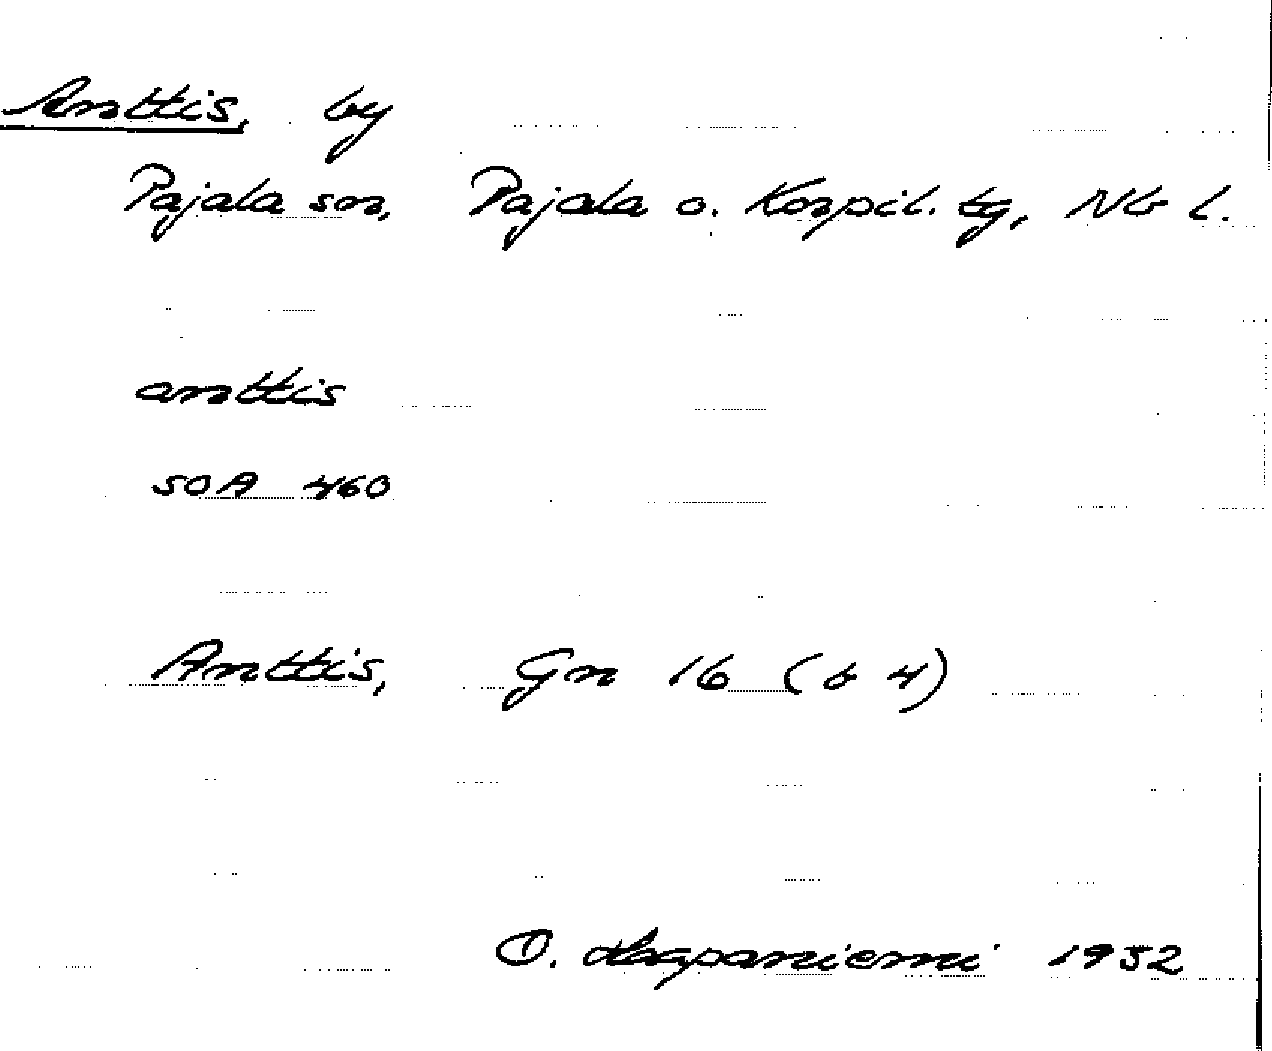 Anttis, by
Pajala sn, Pajala o. Korpil. tg, Nb l.
anttis
SOA 460
Anttis, Gn 16 (b 4)
O. Haapaniemi 1952